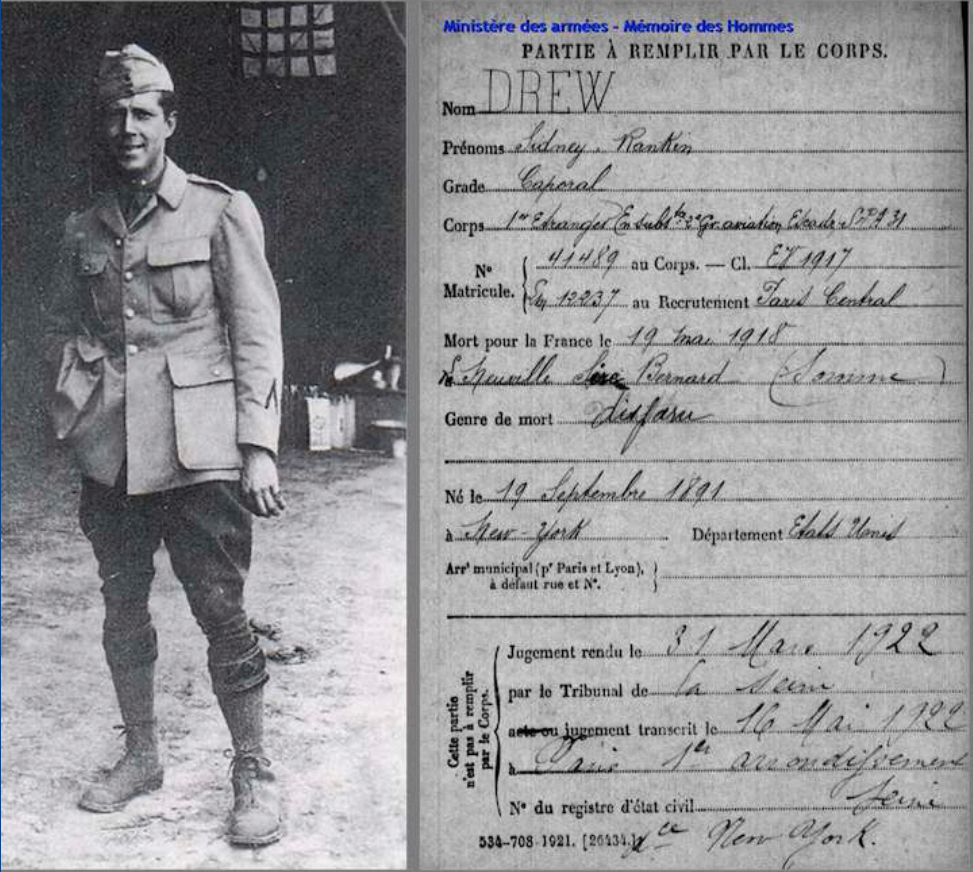 Ministère des armées - Mémoire des Hommes
PARTIE À REMPLIR PAR LE CORPS.
Nom DREW
Prénoms Sidney. Rankin
Grade Caporal
Corps 1er Etranger En subst 2e Gr aviation Escadr SPA 31
N° Matricule. { 41489 au Corps. — Cl. EV 1917
12237 au Recrutement Paris Central
Mort pour la France le 19 mai 1918
à Neuville Sire Bernard (Somme)
Genre de mort disparu
Né le 19 Septembre 1891
à New-York Département Etats Unis
Arrt municipal (pr Paris et Lyon), à défaut rue et N°.
Cette partie n'est pas à remplir par le Corps.
Jugement rendu le 31 Mars 1922
par le Tribunal de la Seine
acte ou jugement transcrit le 16 Mai 1922
à Paris 1er arrondissement
N° du registre d'état civil Seine
534-708-1921. [26434.] New York.